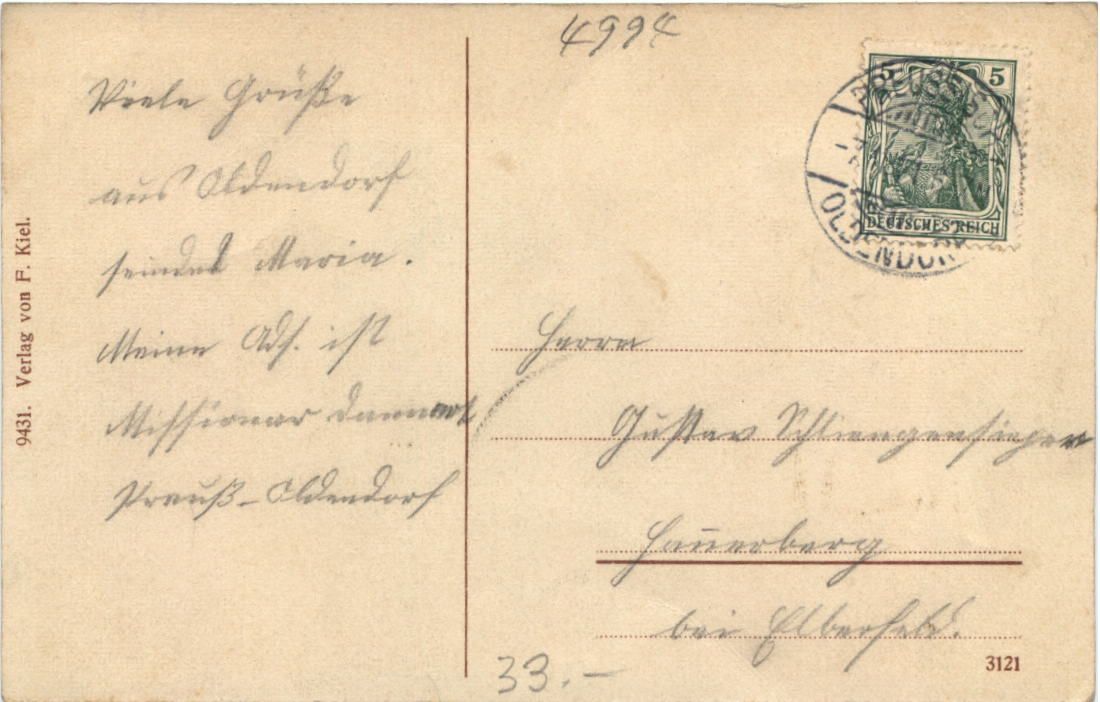 4994
Viele Grüße
aus Oldendorf
sendet Maria.
Meine Adr. ist
Missionar
Preuß-Oldendorf
9431. Verlag von F. Kiel.
5 5
DEUTSCHES REICH
OLDENDORF
Herrn
Gustav Schliengensiepen
bei Elberfeld.
3121
33.-